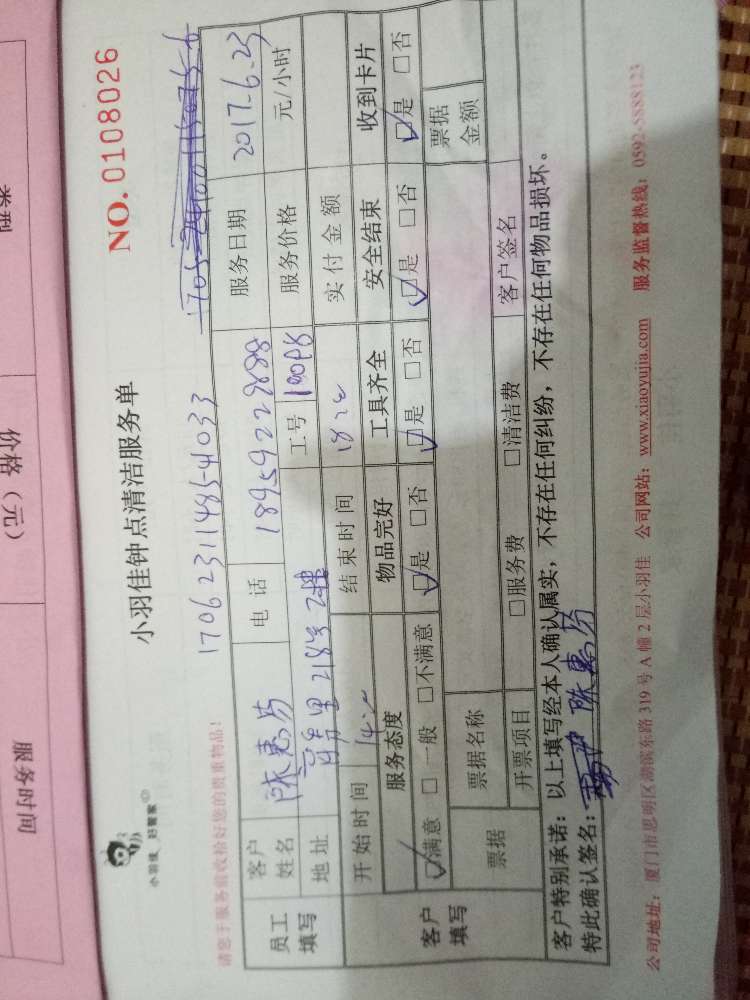 类型
价格（元）
服务时间
小羽佳 好管家
小羽佳钟点清洁服务单
NO.0108026
请您于服务前收拾好您的贵重物品！
17062311485-4033
员工填写
客户姓名 陈惠芬 电话 18959222888 服务日期 2017.6.23
地址 218号 2楼 工号 服务价格 元/小时
开始时间 14:00 结束时间 18:00 实付金额
客户填写
服务态度 物品完好 工具齐全 安全结束 收到卡片
☑满意 □一般 □不满意 ☑是 □否 ☑是 □否 ☑是 □否 ☑是 □否
票据 票据名称 票据金额
开票项目 □服务费 □清洁费 客户签名
客户特别承诺：以上填写经本人确认属实，不存在任何纠纷，不存在任何物品损坏。
特此确认签名： 陈惠芬
公司地址：厦门市思明区湖滨东路319号A幢2层小羽佳 公司网站：www.xiaoyujia.com 服务监督热线：0592-5888123